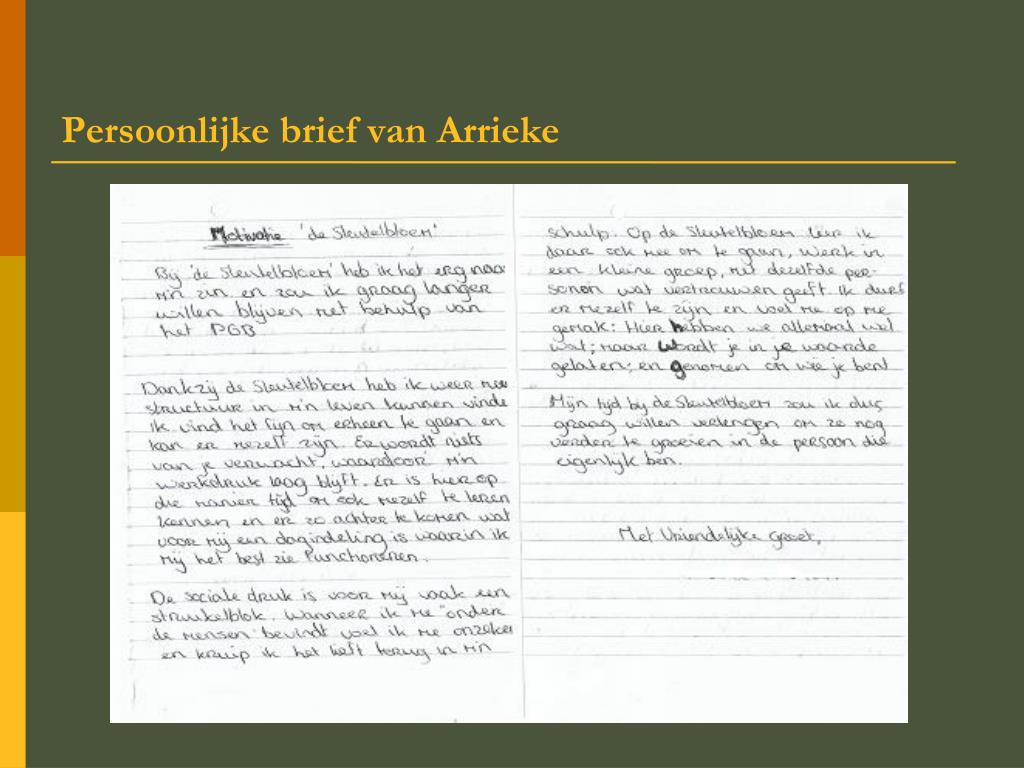 Persoonlijke brief van Arrieke
Motivatie 'de Sleutelbloem'
Bij 'de Sleutelbloem' heb ik het erg naar
m'n zin en zou ik graag langer
willen blijven met behulp van
het PGB
Dankzij de Sleutelbloem heb ik weer mee
structuur in m'n leven kunnen vinde
ik vind het fijn om erheen te gaan en
kan er mezelf zijn. Er wordt niets
van je verwacht, waardoor m'n
werkdruk laag blijft. Er is hier op
die manier tijd om ook mezelf te leren
kennen en er zo achter te komen wat
voor mij een dagindeling is waarin ik
mij het best zie functioneren.
De sociale druk is voor mij vaak een
struikelblok. Wanneer ik me "onder
de mensen" bevindt voel ik me onzeker
en kruip ik het liefst terug in m'n
schulp. Op de Sleutelbloem leer ik
daar ook mee om te gaan, werk in
een kleine groep, met dezelfde per-
sonen wat vertrouwen geeft. Ik durf
er mezelf te zijn en voel me op me
gemak: Hier hebben we allemaal wel
wat; maar wordt je in je waarde
gelaten; en genomen om wie je bent
Mijn tijd bij de Sleutelbloem zou ik dus
graag willen verlengen om zo nog
verder te groeien in de persoon die
eigenlijk ben.
Met Vriendelijke groet,